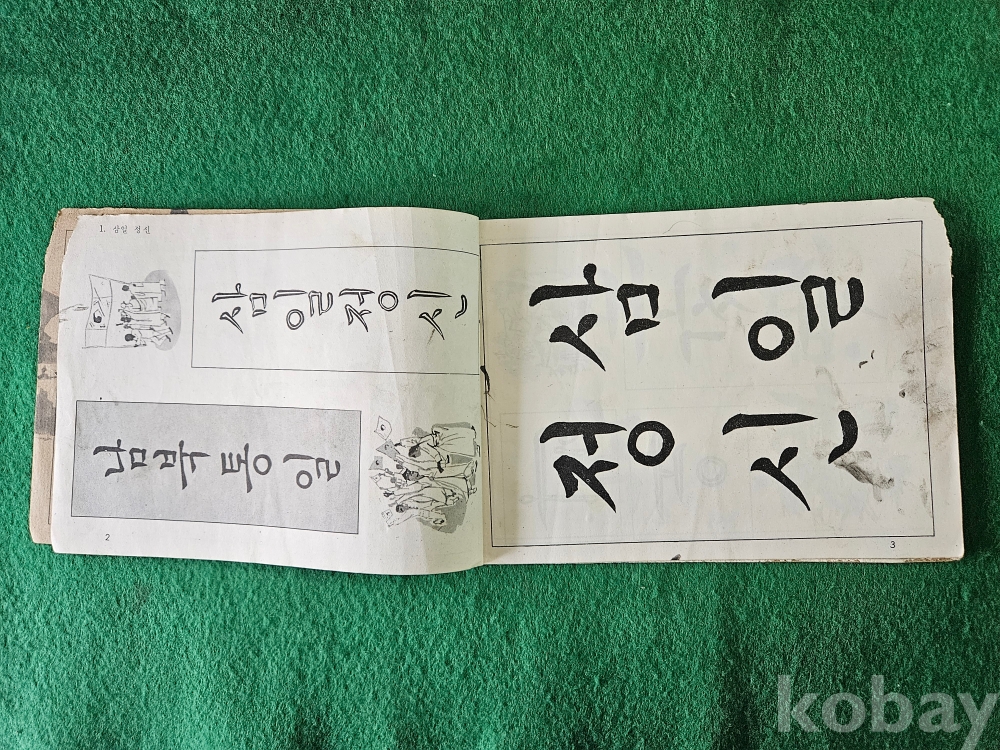 1. 삼일 정신
삼일정신
남북통일
2
삼일
정신
3
kobay